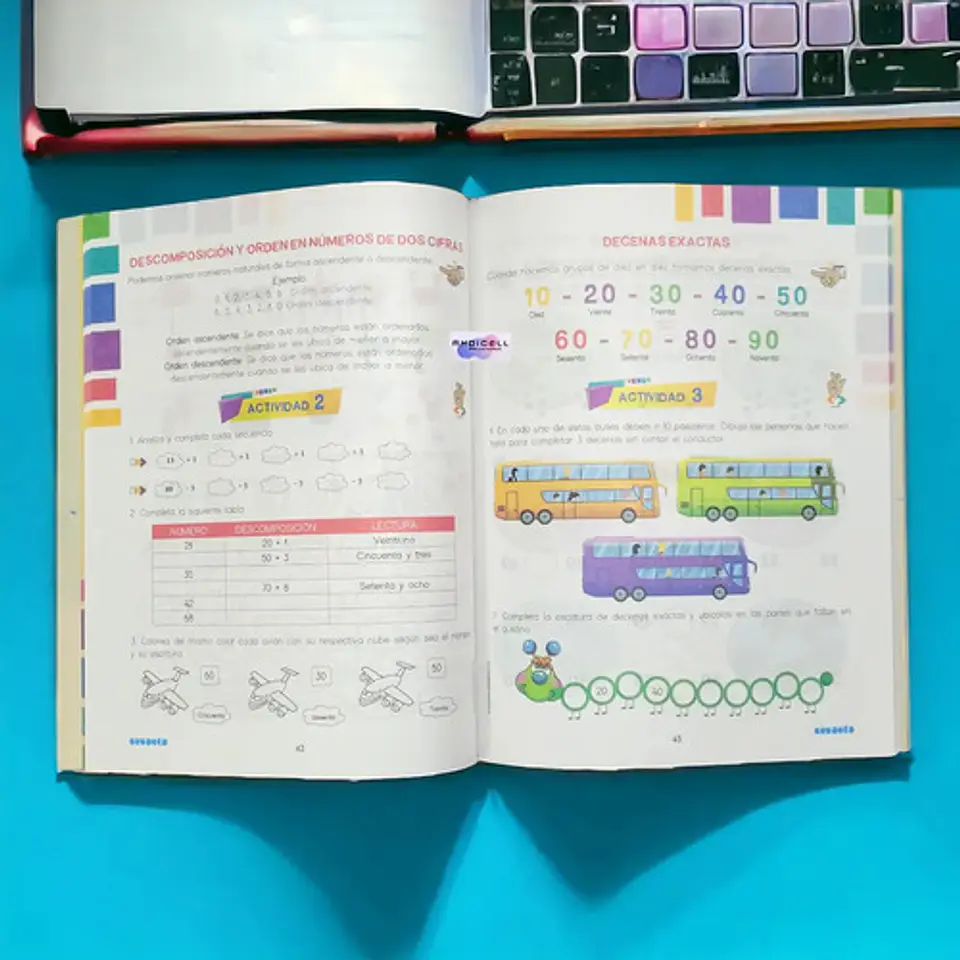 DESCOMPOSICIÓN Y ORDEN EN NÚMEROS DE DOS CIFRAS
Podemos ordenar números naturales de forma ascendente o descendente.
Ejemplo
Orden ascendente
Orden descendente
Orden ascendente Se dice que los números están ordenados
ascendentemente cuando se les ubica de menor a mayor.
Orden descendente Se dice que los números están ordenados
descendentemente cuando se les ubica de mayor a menor.
ACTIVIDAD 2
1 Analiza y completa cada secuencia
2 Completa la siguiente tabla
NÚMERO DESCOMPOSICIÓN LECTURA
20 + 1 Veintiuno
50 + 3 Cincuenta y tres
30
70 + 8 Setenta y ocho
42
68
3 Colorea del mismo color cada avión con su respectiva nube según sea el
y su escritura
60 30 50
Cincuenta Sesenta Treinta
42
MHDICELL
DECENAS EXACTAS
Cuando hacemos grupos de diez en diez formamos decenas exactas.
10 - 20 - 30 - 40 - 50
Diez Veinte Treinta Cuarenta Cincuenta
60 - 70 - 80 - 90
Sesenta Setenta Ochenta Noventa
ACTIVIDAD 3
En cada uno de estos buses deben ir 10 pasajeros. Dibuja las personas que hacen
falta para completar 3 decenas sin contar el conductor
Completa la escritura de decenas exactas y ubícalos en las partes que faltan en
el gusano
20 40
43